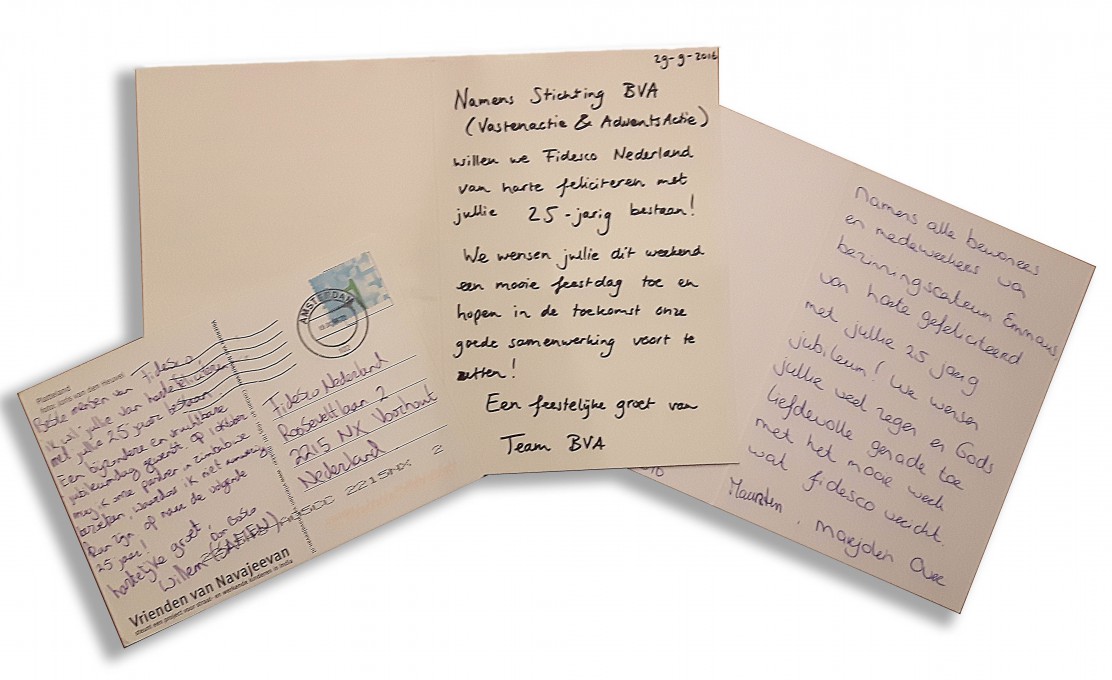 29-9-2016
Namens Stichting BVA
(Vastenactie & AdventsActie)
willen we Fidesco Nederland
van harte feliciteren met
jullie 25-jarig bestaan!
We wensen jullie dit weekend
een mooie feestdag toe en
hopen in de toekomst onze
goede samenwerking voort te
zetten!
Een feestelijke groet van
Team BVA
Platteland
foto: Joris van den Heuvel
Beste mensen van Fidesco,
ik wil jullie van harte feliciteren
met jullie 25 jaar bestaan.
Een bijzondere en vruchtbare
jubileumdag gewenst. Op 1 oktober
mag ik onze partners in Zimbabwe
bezoeken, waardoor ik niet aanwezig
kan zijn. Op naar de volgende
25 jaar!
hartelijke groet,
Willem
Vrienden van Navajeevan
steunt een project voor straat- en werkende kinderen in India
AMSTERDAM
1
Fidesco Nederland
Rooseveltlaan 2
2215 NX Voorhout
Nederland
2215NX 2
Namens alle bewoners
en medewerkers van
bezinningscentrum Emmaus
van harte gefeliciteerd
met jullie 25 jarig
jubileum! We wensen
jullie veel zegen en Gods
liefdevolle genade toe
met het mooie werk
wat fidesco verricht.
Maarten, Marjolein